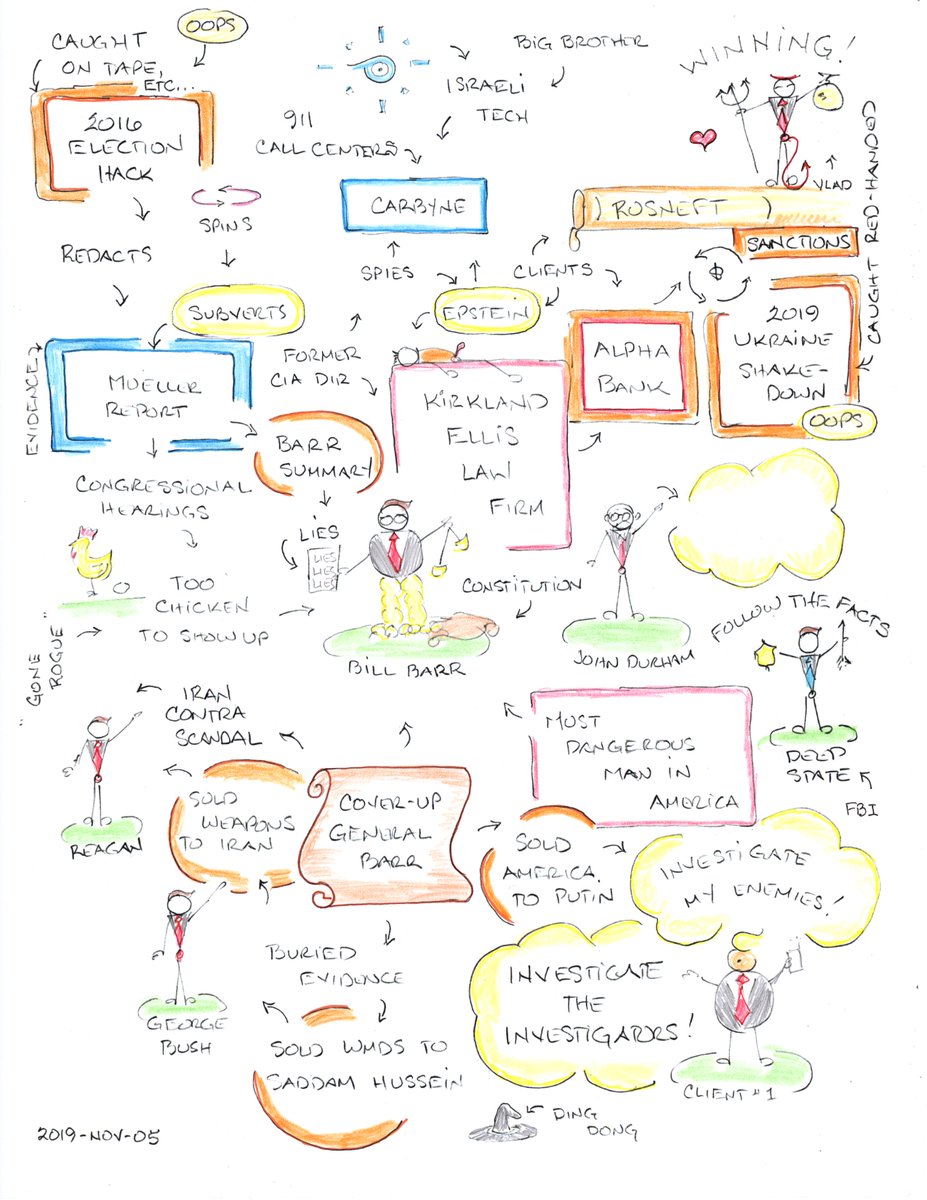 OOPS
CAUGHT
ON TAPE,
ETC...
2016
ELECTION
HACK
SPINS
REDACTS
SUBVERTS
EVIDENCE
MUELLER
REPORT
BARR
SUMMARY
CONGRESSIONAL
HEARINGS
LIES
LIES
LIES
LIES
TOO
CHICKEN
TO SHOW UP
"GONE
ROGUE"
BIG BROTHER
ISRAELI
TECH
911
CALL CENTERS
CARBYNE
SPIES
CLIENTS
EPSTEIN
FORMER
CIA DIR
KIRKLAND
ELLIS
LAW
FIRM
WINNING!
VLAD
) ROSNEFT )
SANCTIONS
CAUGHT RED-HANDED
$
ALPHA
BANK
2019
UKRAINE
SHAKE-
DOWN
OOPS
CONSTITUTION
BILL BARR
JOHN DURHAM
FOLLOW THE FACTS
DEEP
STATE
FBI
IRAN
CONTRA
SCANDAL
REAGAN
SOLD
WEAPONS
TO IRAN
COVER-UP
GENERAL
BARR
MOST
DANGEROUS
MAN IN
AMERICA
SOLD
AMERICA
TO PUTIN
INVESTIGATE
MY ENEMIES!
GEORGE
BUSH
BURIED
EVIDENCE
SOLD WMDS TO
SADDAM HUSSEIN
INVESTIGATE
THE
INVESTIGATORS!
CLIENT #1
DING
DONG
2019-NOV-05